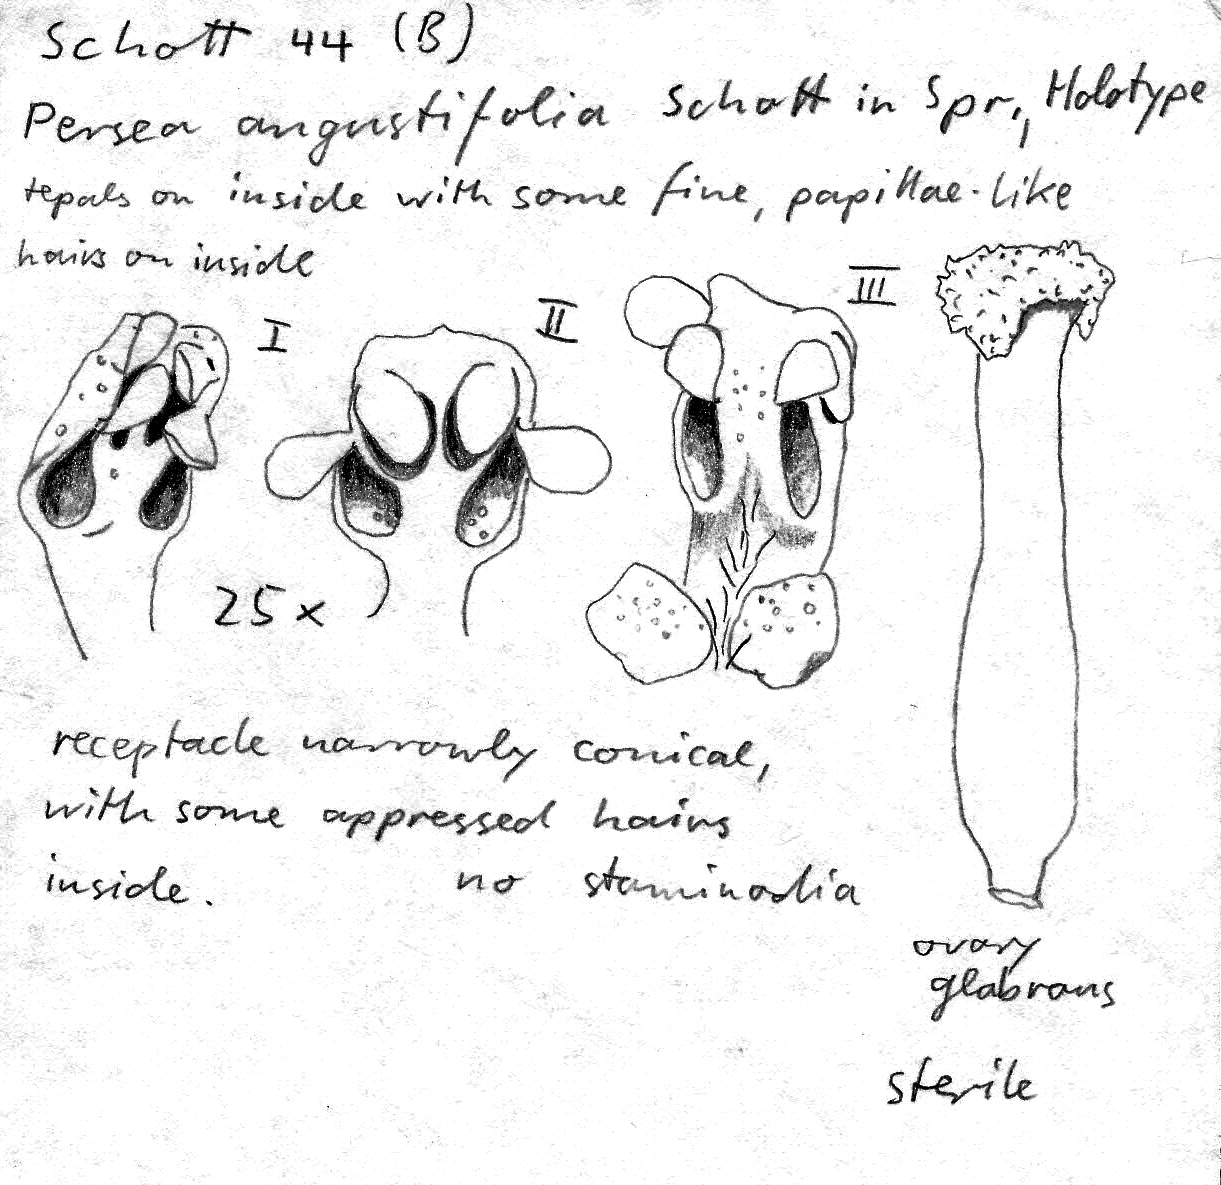 Schott 44 (B)
Persea angustifolia Schott in Spr., Holotype
tepals on inside with some fine, papillae-like
hairs on inside
I
II
III
25 x
receptacle narrowly conical,
with some appressed hairs
inside. no staminodia
ovary
glabrous
sterile